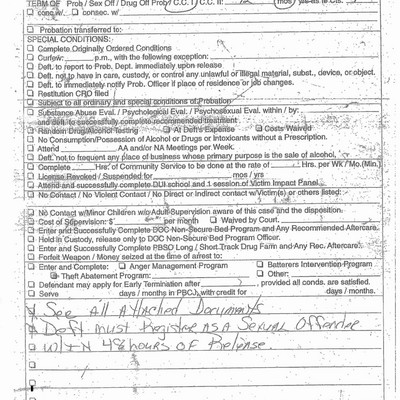 TERM OF Prob / Sex Off / Drug Off Prob / C.C. I / C.C. II: 12 (mos) yrs as to Cts
conc w/. ☐ consec w/.
☐ Probation transferred to:
SPECIAL CONDITIONS:
☐ Complete Originally Ordered Conditions
☐ Curfew: p.m., with the following exception:
☐ Deft. to report to Prob. Dept. immediately upon release
☐ Deft. not to have in care, custody, or control any unlawful or illegal material, subst., device, or object.
☐ Deft. to immediately notify Prob. Officer if place of residence or job changes.
☐ Restitution CRO filed
☐ Subject to all ordinary and special conditions of Probation
☐ Substance Abuse Eval. / Psychological Eval. / Psychosexual Eval. within / by:
and deft. to successfully complete recommended treatment
☐ Random Drug/Alcohol Testing ☐ At Deft's Expense ☐ Costs Waived
☐ No Consumption/Possession of Alcohol or Drugs or Intoxicants without a Prescription.
☐ Attend AA and/or NA Meetings per Week.
☐ Deft. not to frequent any place of business whose primary purpose is the sale of alcohol,
☐ Complete Hrs. of Community Service to be done at the rate of Hrs. per WK / Mo.(Min.)
☐ License Revoked / Suspended for mos / yrs
☐ Attend and successfully complete DUI school and 1 session of Victim Impact Panel
☐ No Contact / No Violent Contact / No Direct or Indirect contact w/Victim(s) or others listed:
☐ No Contact w/Minor Children w/o Adult Supervision aware of this case and the disposition.
☐ Cost of Supervision: $ per month ☐ Waived by Court.
☐ Enter and Successfully Complete DOC Non-Secure Bed Program and Any Recommended Aftercare.
☐ Held in Custody, release only to DOC Non-Secure Bed Program Officer.
☐ Enter and Successfully Complete PBSO Long / Short Track Drug Farm and Any Rec. Aftercare.
☐ Forfeit Weapon / Money seized at the time of arrest to:
☐ Enter and Complete: ☐ Anger Management Program ☐ Batterers Intervention Program
☐ Theft Abatement Program: ☐ Other:
☐ Defendant may apply for Early Termination after , provided all conds. are satisfied.
☐ Serve days / months in PBCJ, with credit for days / months.
See all Attached Documents
Deft must Register AS A Sexual Offender
☐ W/IN 48 hours of Release.
☐
☐
☐